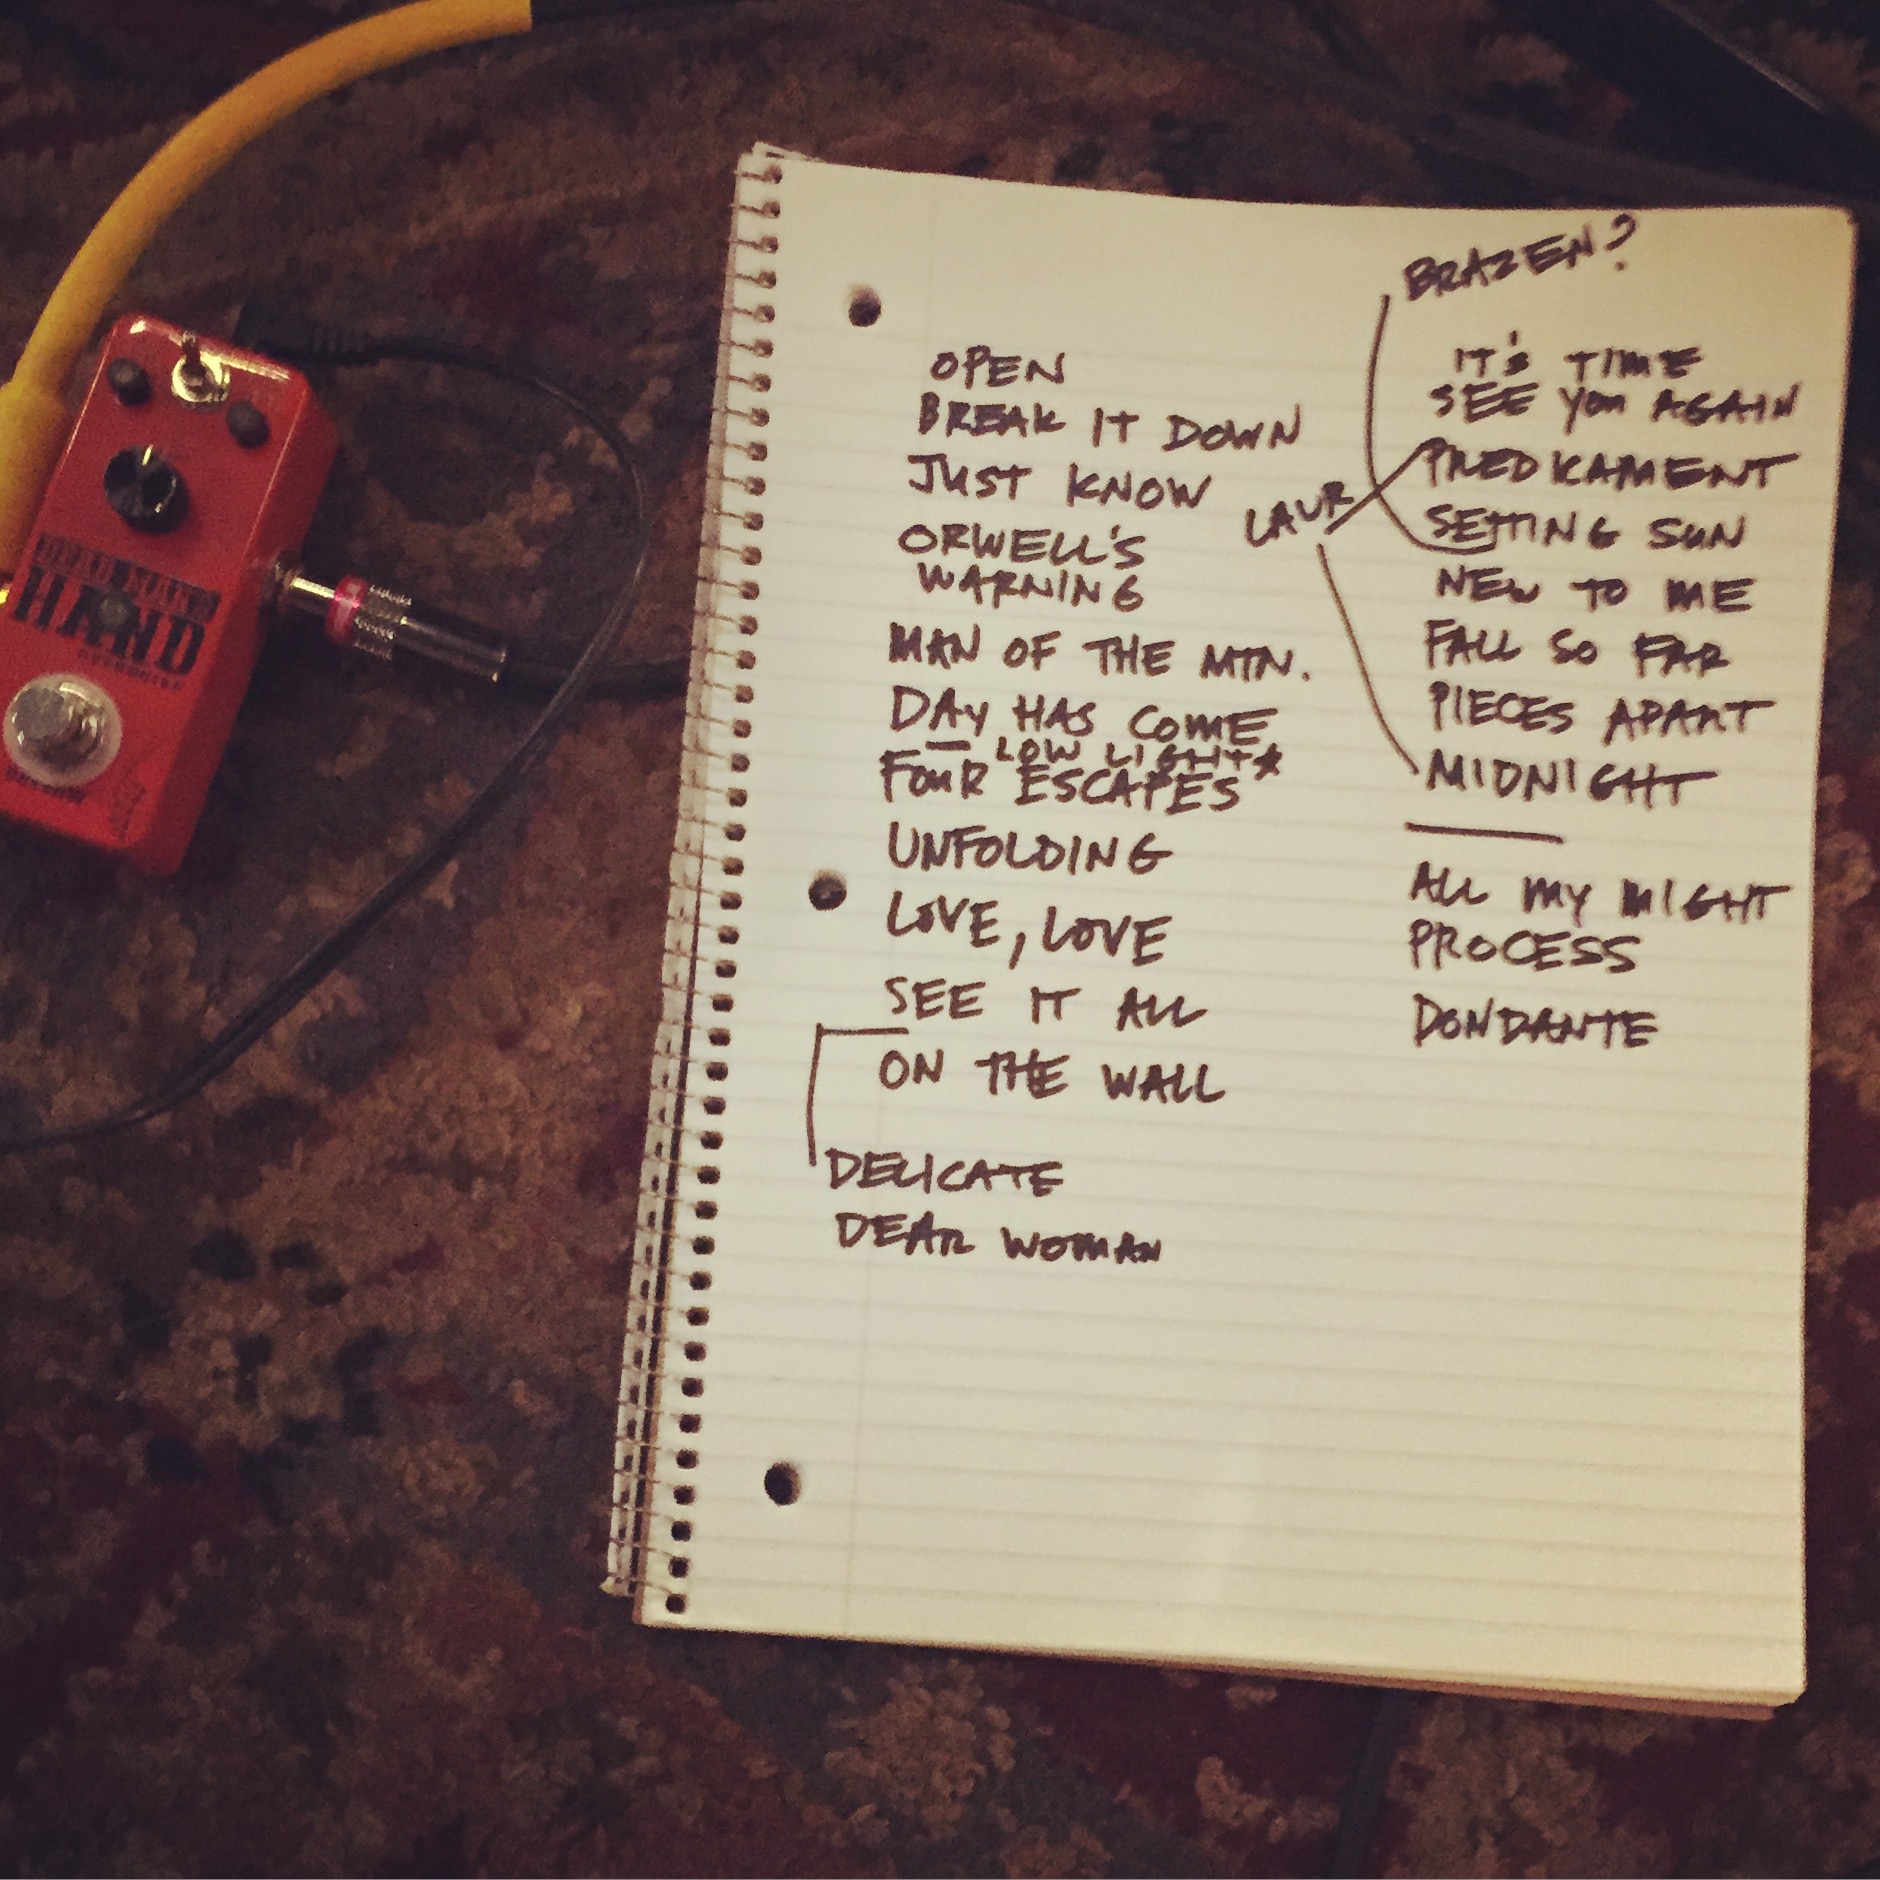 HAND
OPEN
BREAK IT DOWN
JUST KNOW
ORWELL'S
WARNING
MAN OF THE MTN.
DAY HAS COME
— LOW LIGHT*
FOUR ESCAPES
UNFOLDING
LOVE, LOVE
SEE IT ALL
ON THE WALL
DELICATE
DEAR WOMAN
BRAZEN?
IT'S TIME
SEE YOU AGAIN
PREDICAMENT
LAUR
SETTING SUN
NEW TO ME
FALL SO FAR
PIECES APART
MIDNIGHT
ALL MY MIGHT
PROCESS
DONDANTE